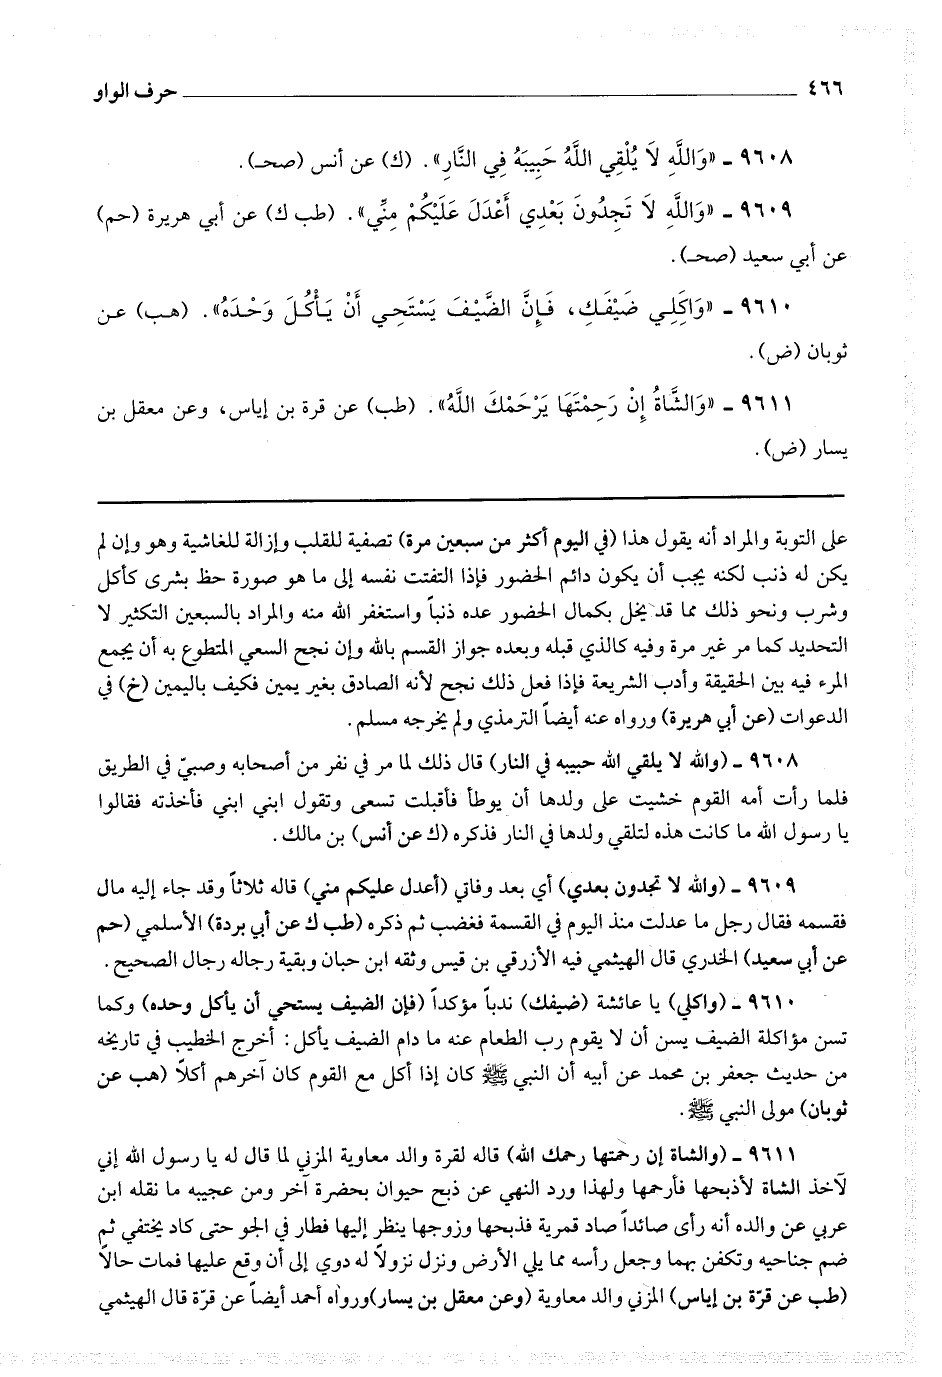 ٤٦٦ حرف الواو
٩٦٠٨ ـ «وَاللَّهِ لَا يُلْقِي اللَّهُ حَبِيبَهُ فِي النَّارِ». (ك) عن أنس (صحـ).
٩٦٠٩ ـ «وَاللَّهِ لَا تَجِدُونَ بَعْدِي أَعْدَلَ عَلَيْكُمْ مِنِّي». (طب ك) عن أبي هريرة (حم)
عن أبي سعيد (صحـ).
٩٦١٠ ـ «وَاكِلِي ضَيْفَكِ، فَإِنَّ الضَّيْفَ يَسْتَحِي أَنْ يَأْكُلَ وَحْدَهُ». (هب) عن
ثوبان (ض).
٩٦١١ ـ «وَالشَّاةُ إِنْ رَحِمْتَهَا يَرْحَمْكَ اللَّهُ». (طب) عن قرة بن إياس، وعن معقل بن
يسار (ض).
على التوبة والمراد أنه يقول هذا (في اليوم أكثر من سبعين مرة) تصفية للقلب وإزالة للغاشية وهو وإن لم
يكن له ذنب لكنه يجب أن يكون دائم الحضور فإذا التفتت نفسه إلى ما هو صورة حظ بشرى كأكل
وشرب ونحو ذلك مما قد يخل بكمال الحضور عده ذنباً واستغفر الله منه والمراد بالسبعين التكثير لا
التحديد كما مر غير مرة وفيه كالذي قبله وبعده جواز القسم بالله وإن نجح السعي المتطوع به أن يجمع
المرء فيه بين الحقيقة وأدب الشريعة فإذا فعل ذلك نجح لأنه الصادق بغير يمين فكيف باليمين (خ) في
الدعوات (عن أبي هريرة) ورواه عنه أيضاً الترمذي ولم يخرجه مسلم.
٩٦٠٨ ـ (والله لا يلقي الله حبيبه في النار) قال ذلك لما مر في نفر من أصحابه وصبيّ في الطريق
فلما رأت أمه القوم خشيت على ولدها أن يوطأ فأقبلت تسعى وتقول ابني ابني فأخذته فقالوا
يا رسول الله ما كانت هذه لتلقي ولدها في النار فذكره (ك عن أنس) بن مالك.
٩٦٠٩ ـ (والله لا تجدون بعدي) أي بعد وفاتي (أعدل عليكم مني) قاله ثلاثاً وقد جاء إليه مال
فقسمه فقال رجل ما عدلت منذ اليوم في القسمة فغضب ثم ذكره (طب ك عن أبي بردة) الأسلمي (حم
عن أبي سعيد) الخدري قال الهيثمي فيه الأزرقي بن قيس وثقه ابن حبان وبقية رجاله رجال الصحيح.
٩٦١٠ ـ (واكلي) يا عائشة (ضيفك) ندباً مؤكداً (فإن الضيف يستحي أن يأكل وحده) وكما
تسن مؤاكلة الضيف يسن أن لا يقوم رب الطعام عنه ما دام الضيف يأكل: أخرج الخطيب في تاريخه
من حديث جعفر بن محمد عن أبيه أن النبي ﷺ كان إذا أكل مع القوم كان آخرهم أكلاً (هب عن
ثوبان) مولى النبي ﷺ.
٩٦١١ ـ (والشاة إن رحمتها رحمك الله) قاله لقرة والد معاوية المزني لما قال له يا رسول الله إني
لآخذ الشاة لأذبحها فأرحمها ولهذا ورد النهي عن ذبح حيوان بحضرة آخر ومن عجيبه ما نقله ابن
عربي عن والده أنه رأى صائداً صاد قمرية فذبحها وزوجها ينظر إليها فطار في الجو حتى كاد يختفي ثم
ضم جناحيه وتكفن بهما وجعل رأسه مما يلي الأرض ونزل نزولاً له دوي إلى أن وقع عليها فمات حالاً
(طب عن قرّة بن إياس) المزني والد معاوية (وعن معقل بن يسار)ورواه أحمد أيضاً عن قرّة قال الهيثمي